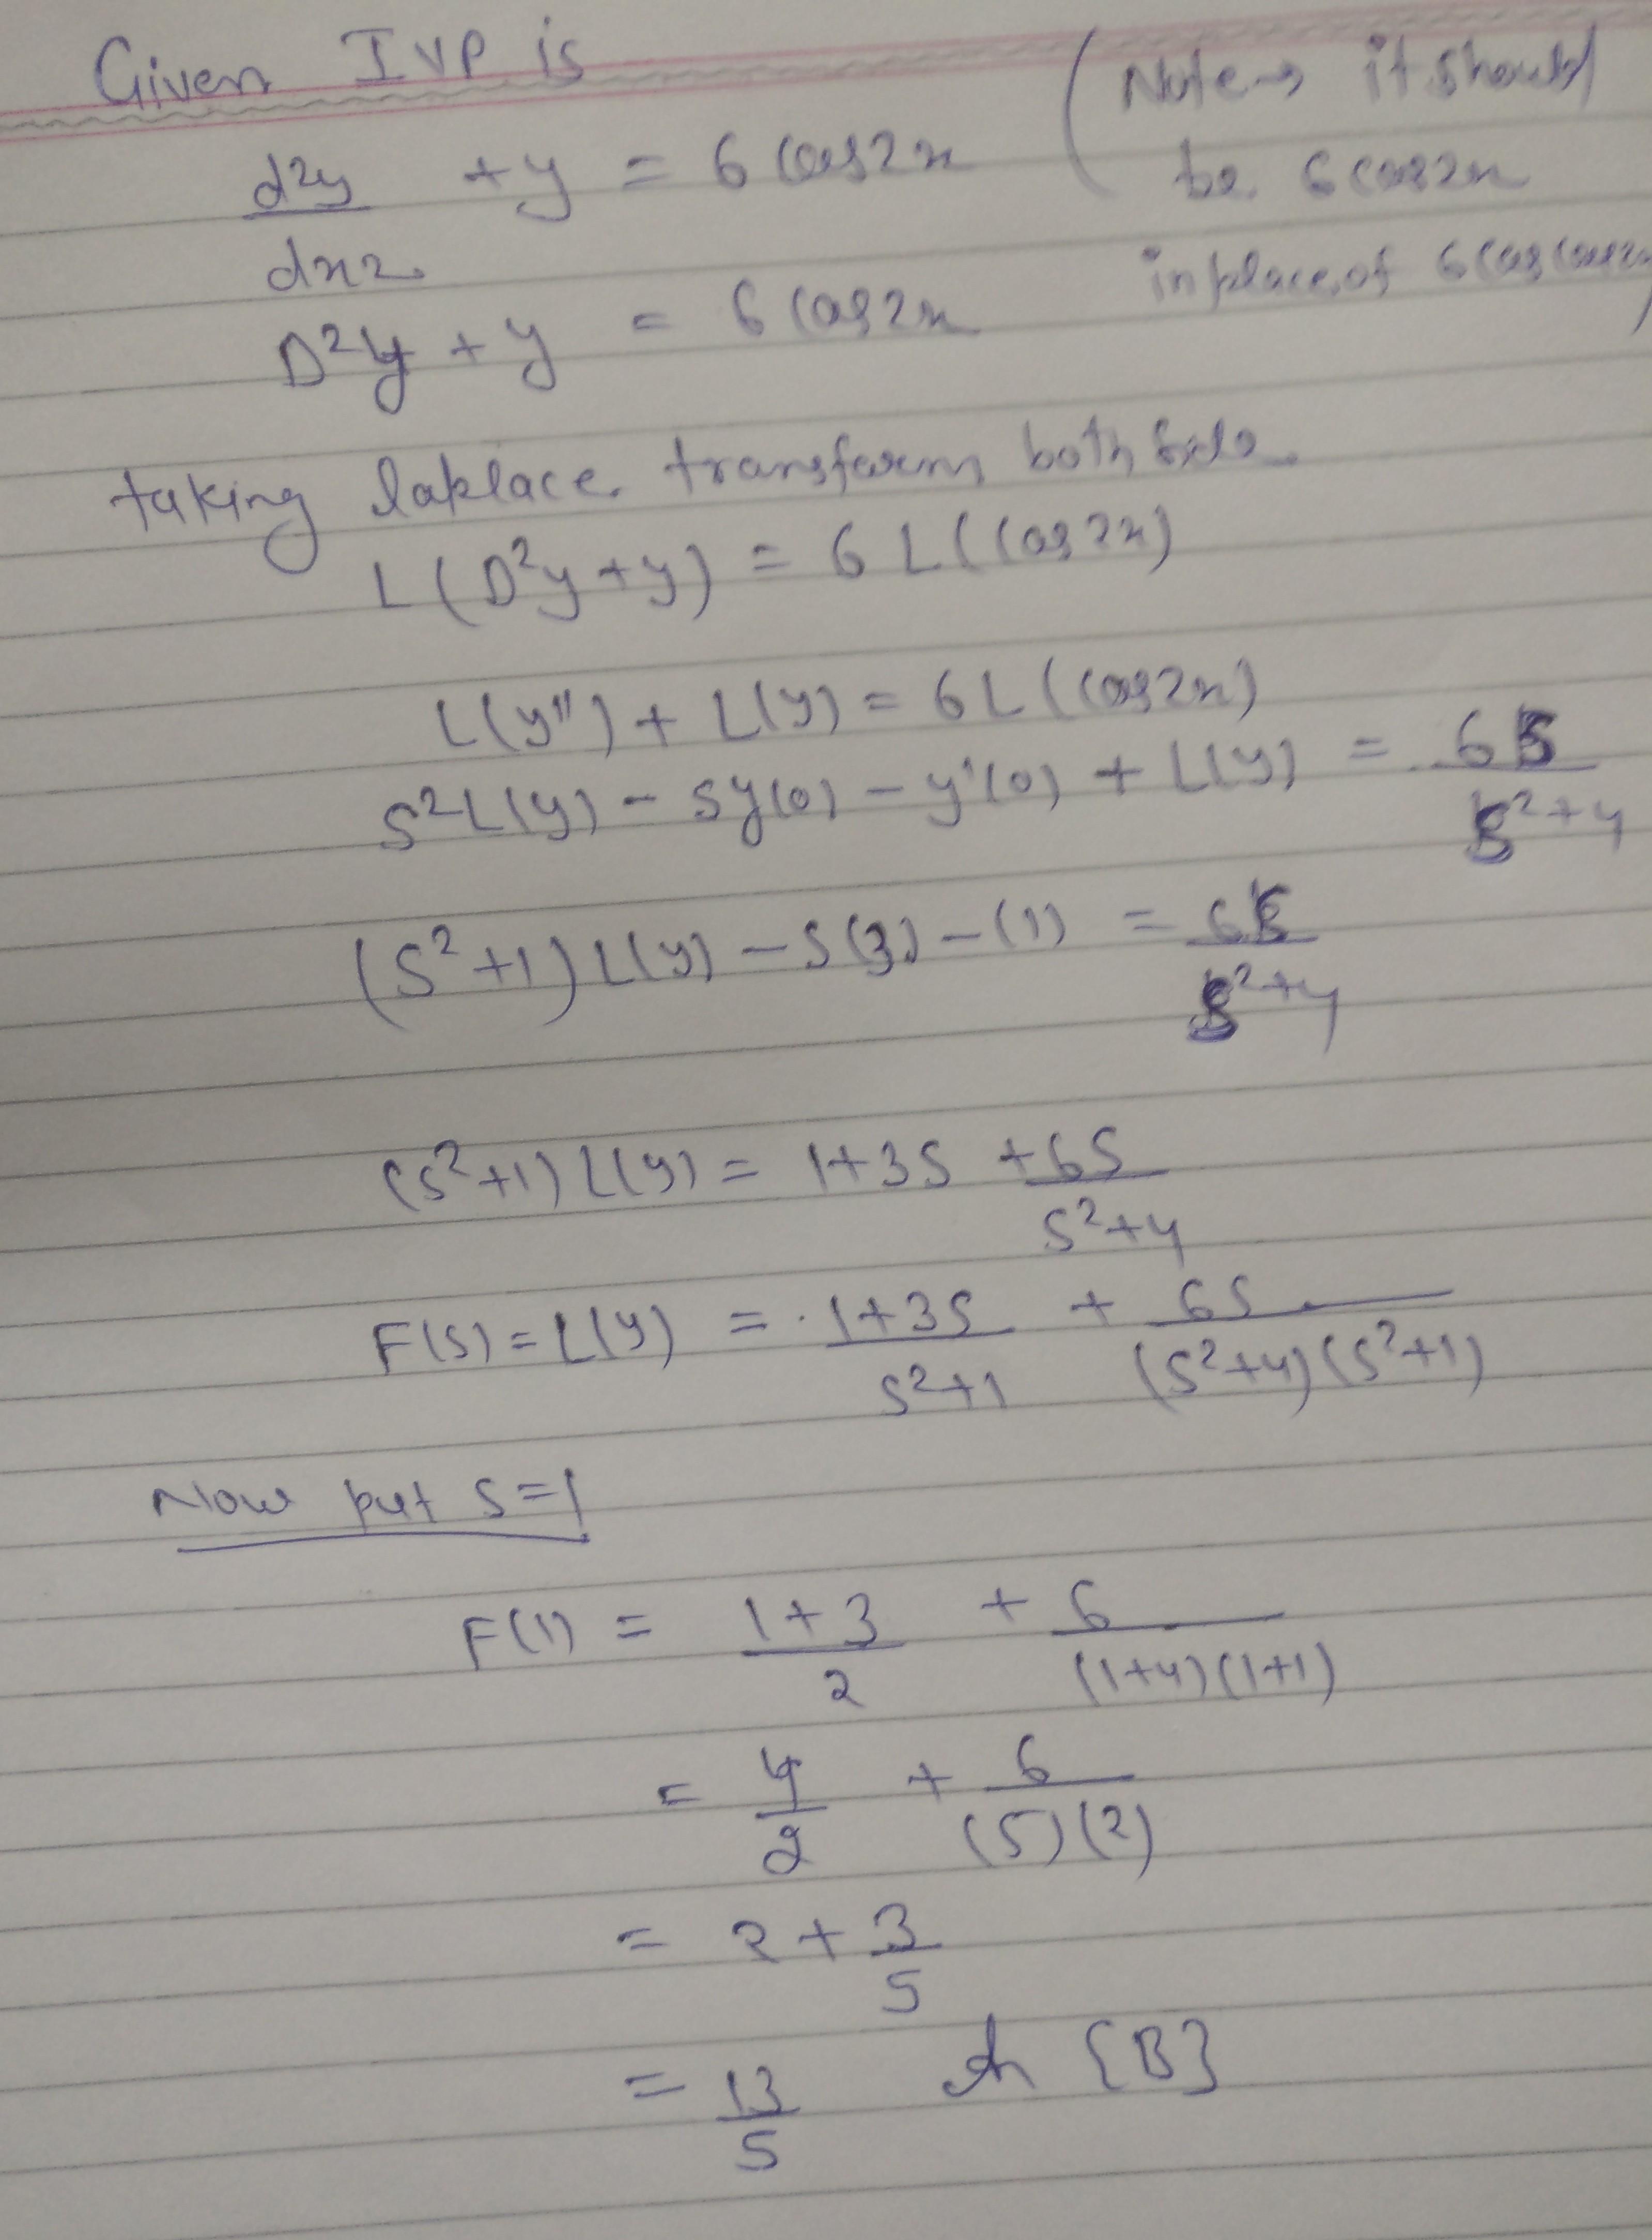 Given IVP is
d²y/dx2 + y = 6 cos2x
(Note → it should
be 6 cos2x
in place of 6 cos cos2x)
D²y + y = 6 cos2x
taking laplace transform both side
L(D²y+y) = 6 L(cos2x)
L(y'') + L(y) = 6L(cos2x)
S²L(y) - sy(0) - y'(0) + L(y) = 6s/s²+4
(S²+1) L(y) - S(3) - (1) = 6s/s²+4
(s²+1) L(y) = 1+3S + 6S/S²+4
F(S) = L(y) = 1+3S/S²+1 + 6S/(S²+4)(S²+1)
Now put S=1
F(1) = 1+3/2 + 6/(1+4)(1+1)
= 4/2 + 6/(5)(2)
= 2 + 3/5
= 13/5 {B}